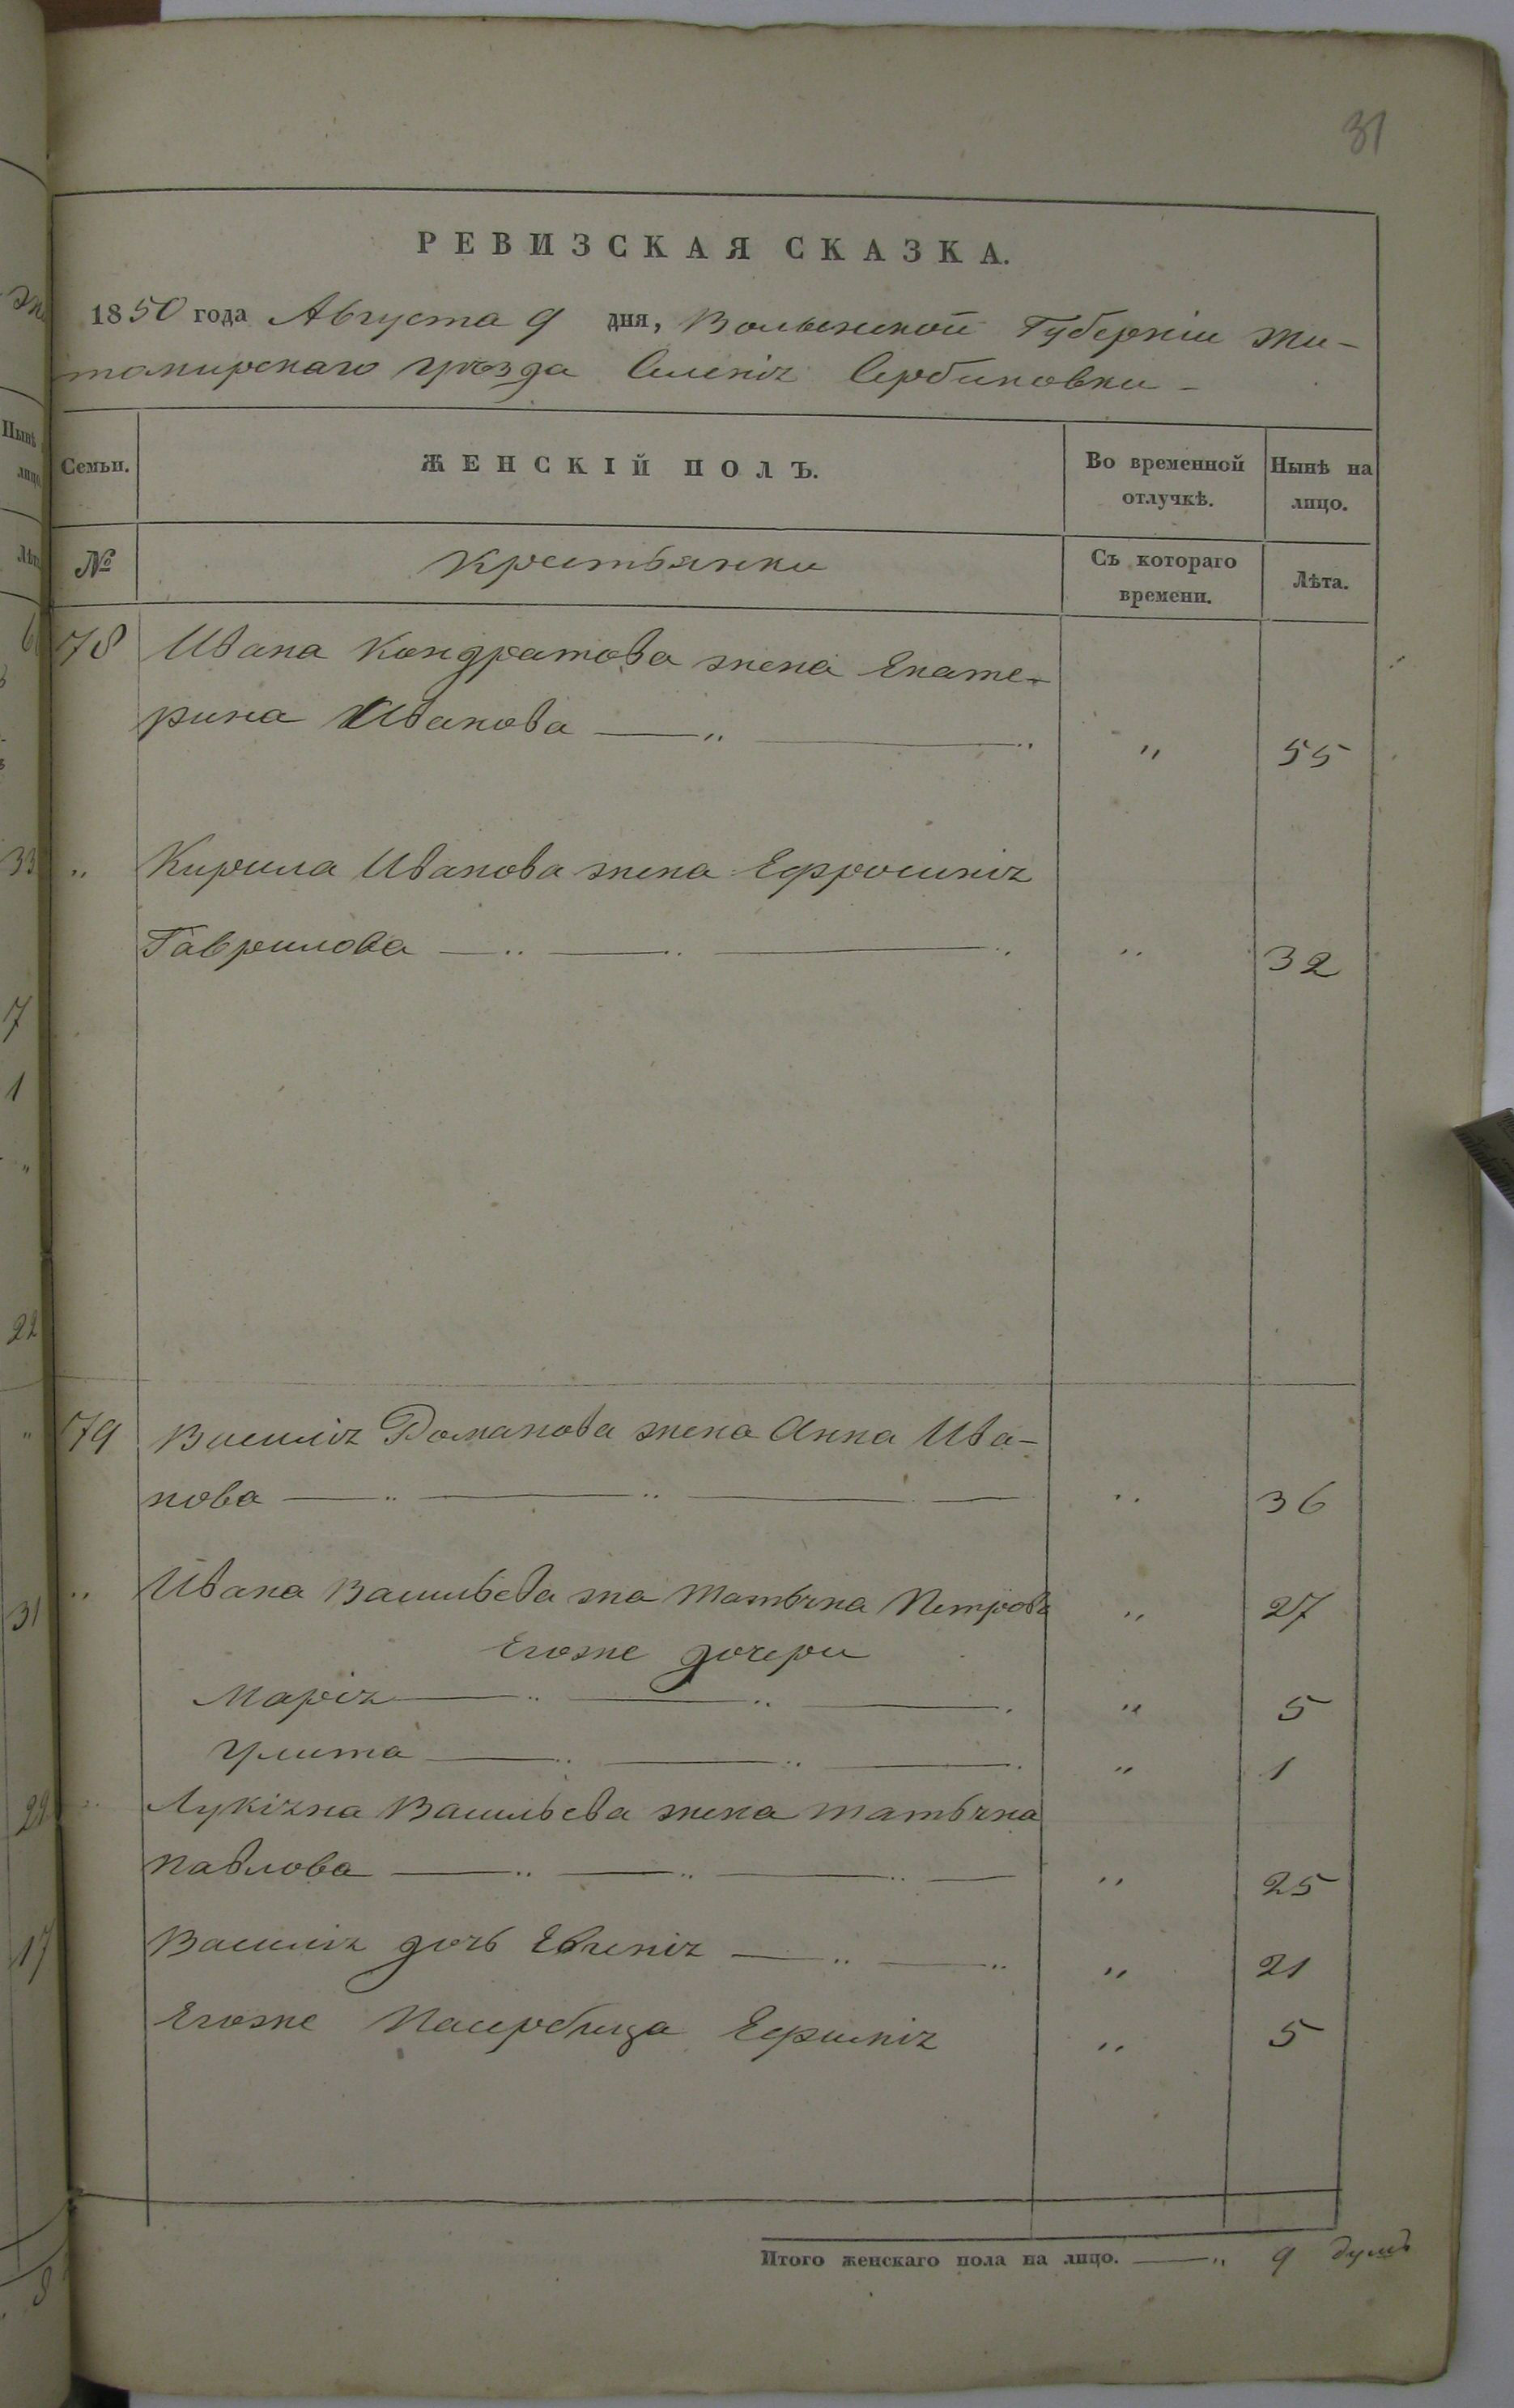 31
РЕВИЗСКАЯ СКАЗКА.
1850 года Августа 9 дня, Волынской Губерніи Жи-
томирскаго уѣзда Селенія Сербиновки -
Семьи. ЖЕНСКІЙ ПОЛЪ. Во временной отлучкѣ. Нынѣ на лицо.
№ Крестьянки Съ котораго времени. Лѣта.
78 Ивана Кондратова жена Екате-
рина Иванова — " — " 55
" Кирила Иванова жена Ефросинія
Гаврилова — " — " — " 32
79 Василія Романова жена Анна Ива-
нова — " — " — " 36
" Ивана Васильева жа Татьяна Петрова " 27
Егоже дочери
Марія — " — " — " 5
Улита — " — " — " 1
" Лукіяна Васильева жена Татьяна
Павлова — " — " — " 25
Василія дочь Евгенія — " — " 21
Егоже Ефимія " 5
Итого женскаго пола на лицо. — " 9 душъ
33
7
1
"
22
"
31
22
17